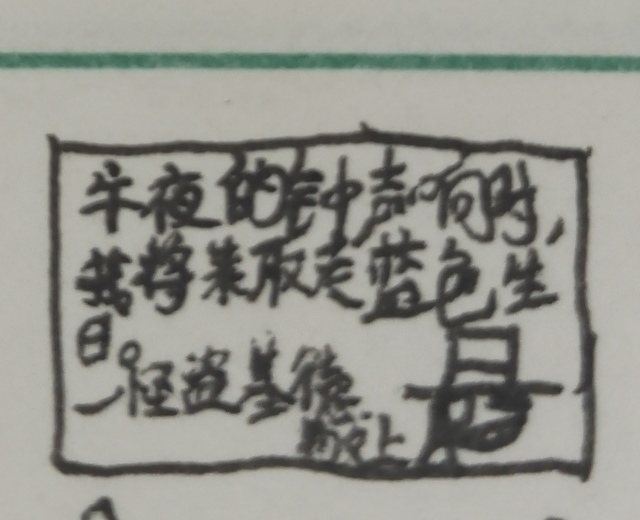 午夜的钟声响时,
我将来取走蓝色生
日。
一怪盗基德
敬上